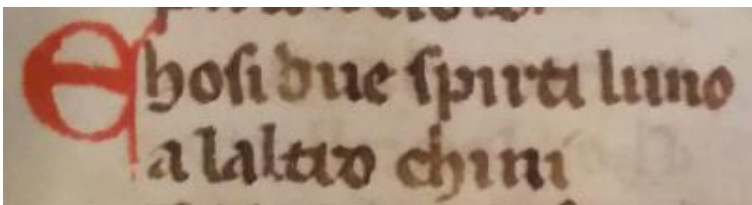 Ehosi due spirti luno
a laltro chini